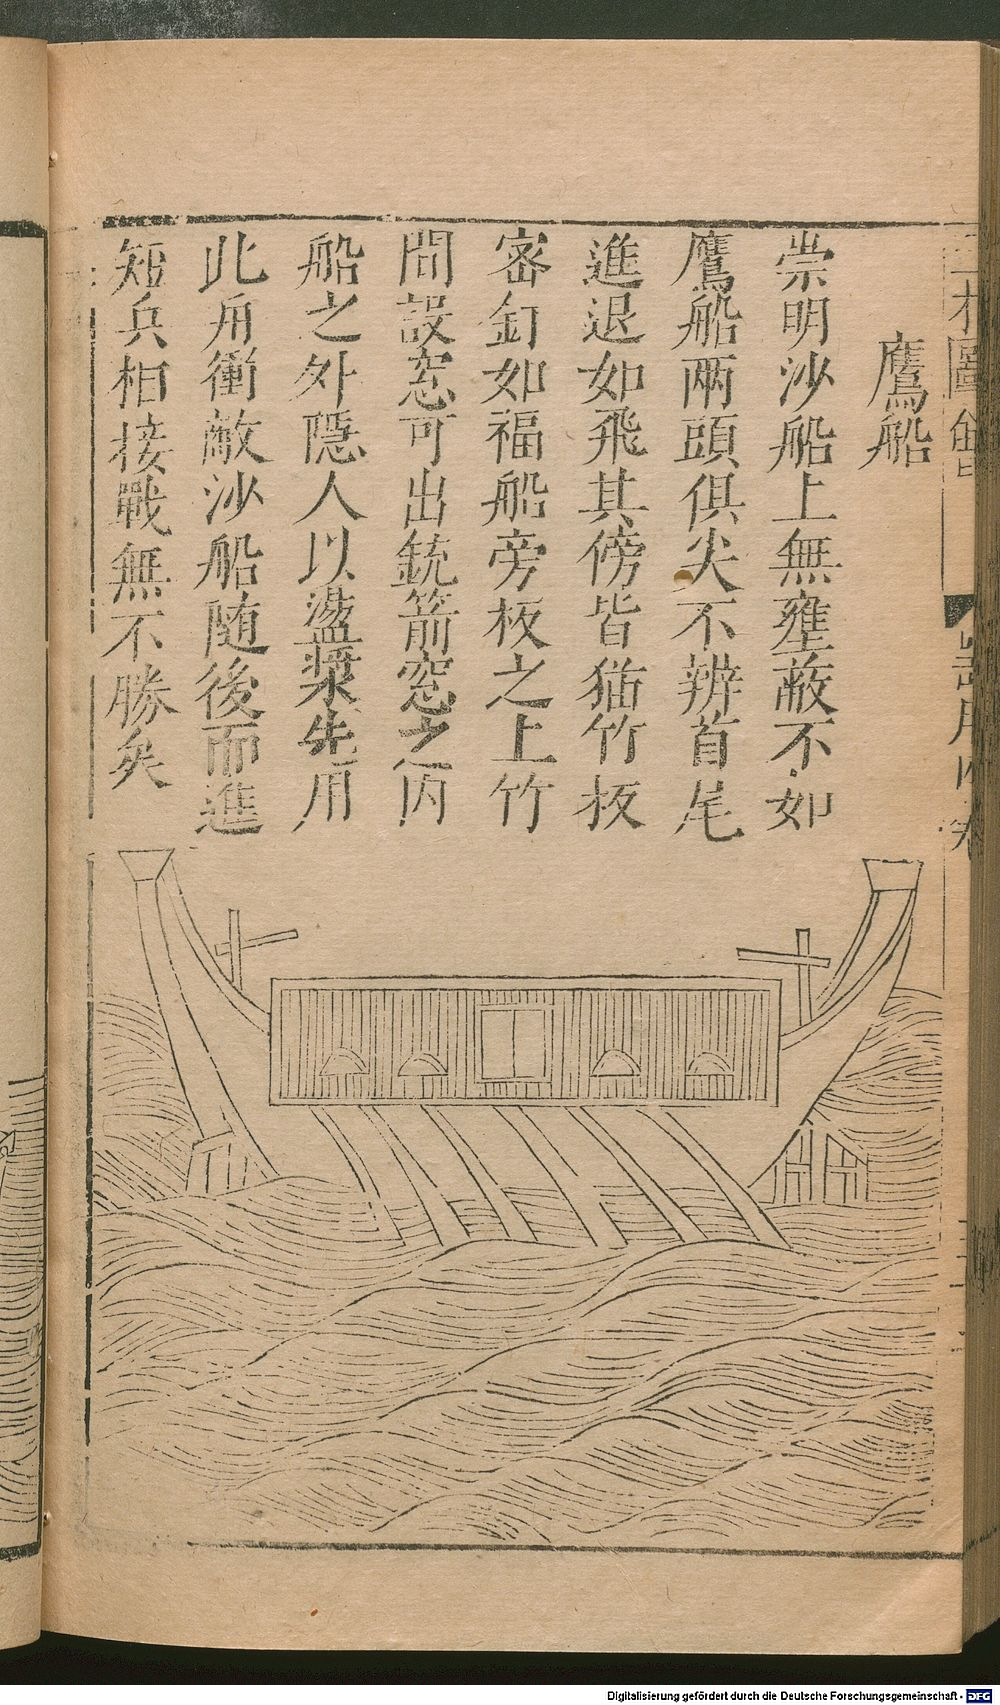 三才圖會
器用四卷
鷹船
崇明沙船上無壅蔽不如
鷹船兩頭俱尖不辨首尾
進退如飛其傍皆猫竹板
宻釘如福船旁板之上竹
間設窓可出銃箭窓之内
船之外隱人以盪槳先用
此舟衝敵沙船随後而進
短兵相接戰無不勝矣
Digitalisierung gefördert durch die Deutsche Forschungsgemeinschaft - DFG